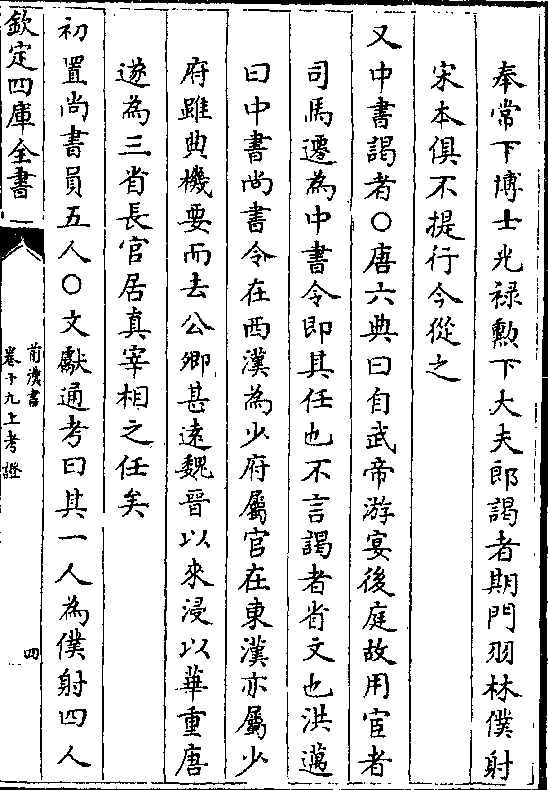 奉常下博士光禄勲下大夫郎謁者期門羽林僕射
宋本俱不提行今從之
又中書謁者〇唐六典曰自武帝游宴後庭故用宦者
司馬遷為中書令即其任也不言謁者省文也洪邁
曰中書尚書令在西漢為少府屬官在東漢亦屬少
府雖典機要而去公卿甚逺魏晉以來浸以華重唐
遂為三省長官居真宰相之任矣
初置尚書員五人〇文獻通考曰其一人為僕射四人
欽定四庫全書
前漢書
卷十九上考證
四